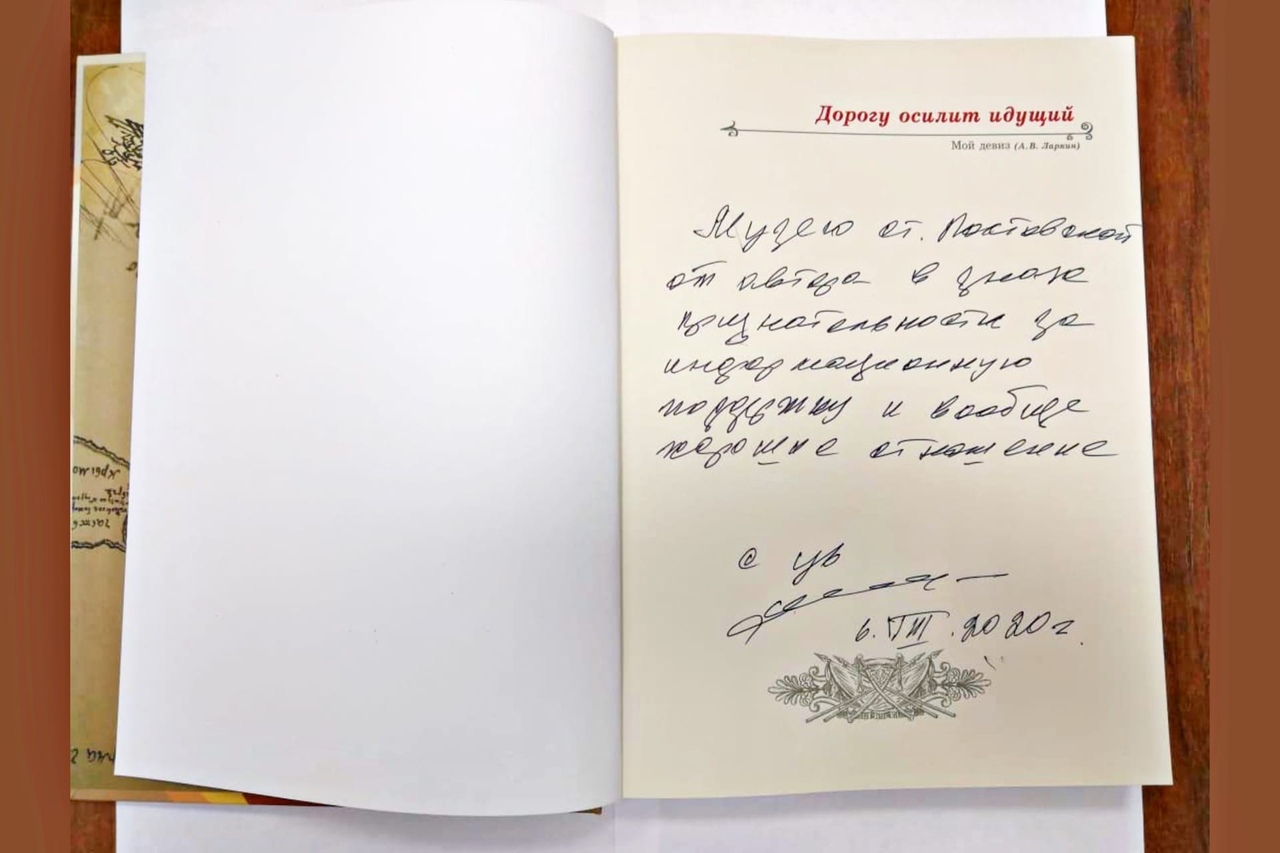 Дорогу осилит идущий
Мой девиз (А.В. Ларкин)
Музею ст. Poставской
от автора в знак
признательности за
информационную
поддержку и вообще
хорошее отношение
с ув
6.VIII.2020г.
Крымо
часть